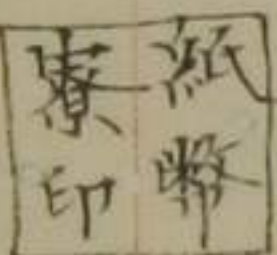 紙幣
寮印